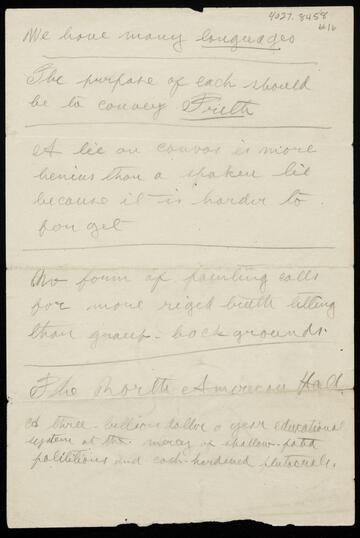 4027.8458
We have many languages
The purpose of each should
be to convey Truth
A lie on canvas is more
henius than a spoken lie
because it is harder to
forget
No form of painting calls
for more riged truth telling
than group-backgrounds.
The North American Hall.
A three-billion dollar a year educational
system at the mercy of shallow-pated
politicians and cash-hardened plutocrats.